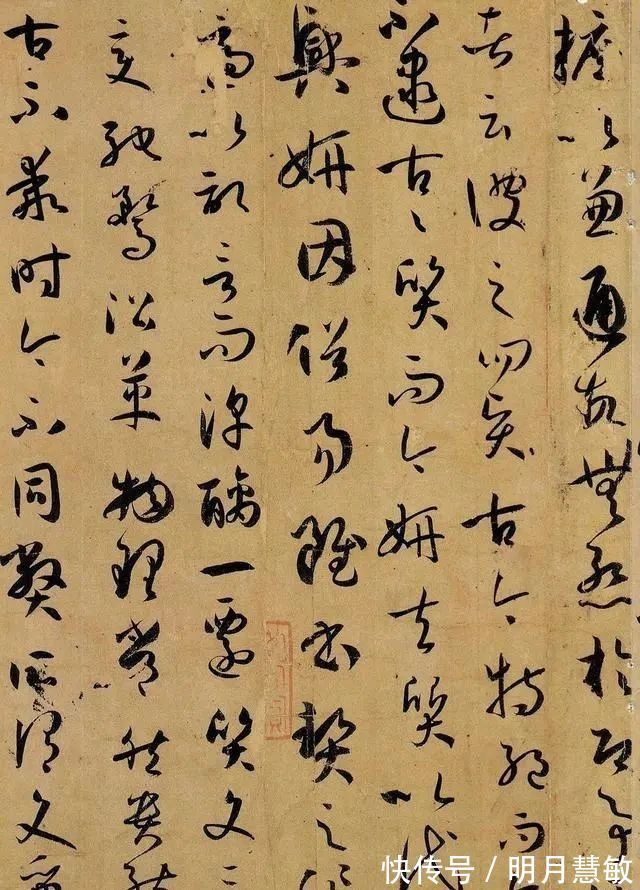 摭以兼通故無慚於即事
者云彼之四賢古今特絕而
不逮古〻質而今妍夫質以代
興妍因俗易雖書契之作
適以記言而淳醨一遷質文三
變馳鶩沿革物理常然貴能
古不乖時今不同弊所謂文質
快传号 / 明月慧敏